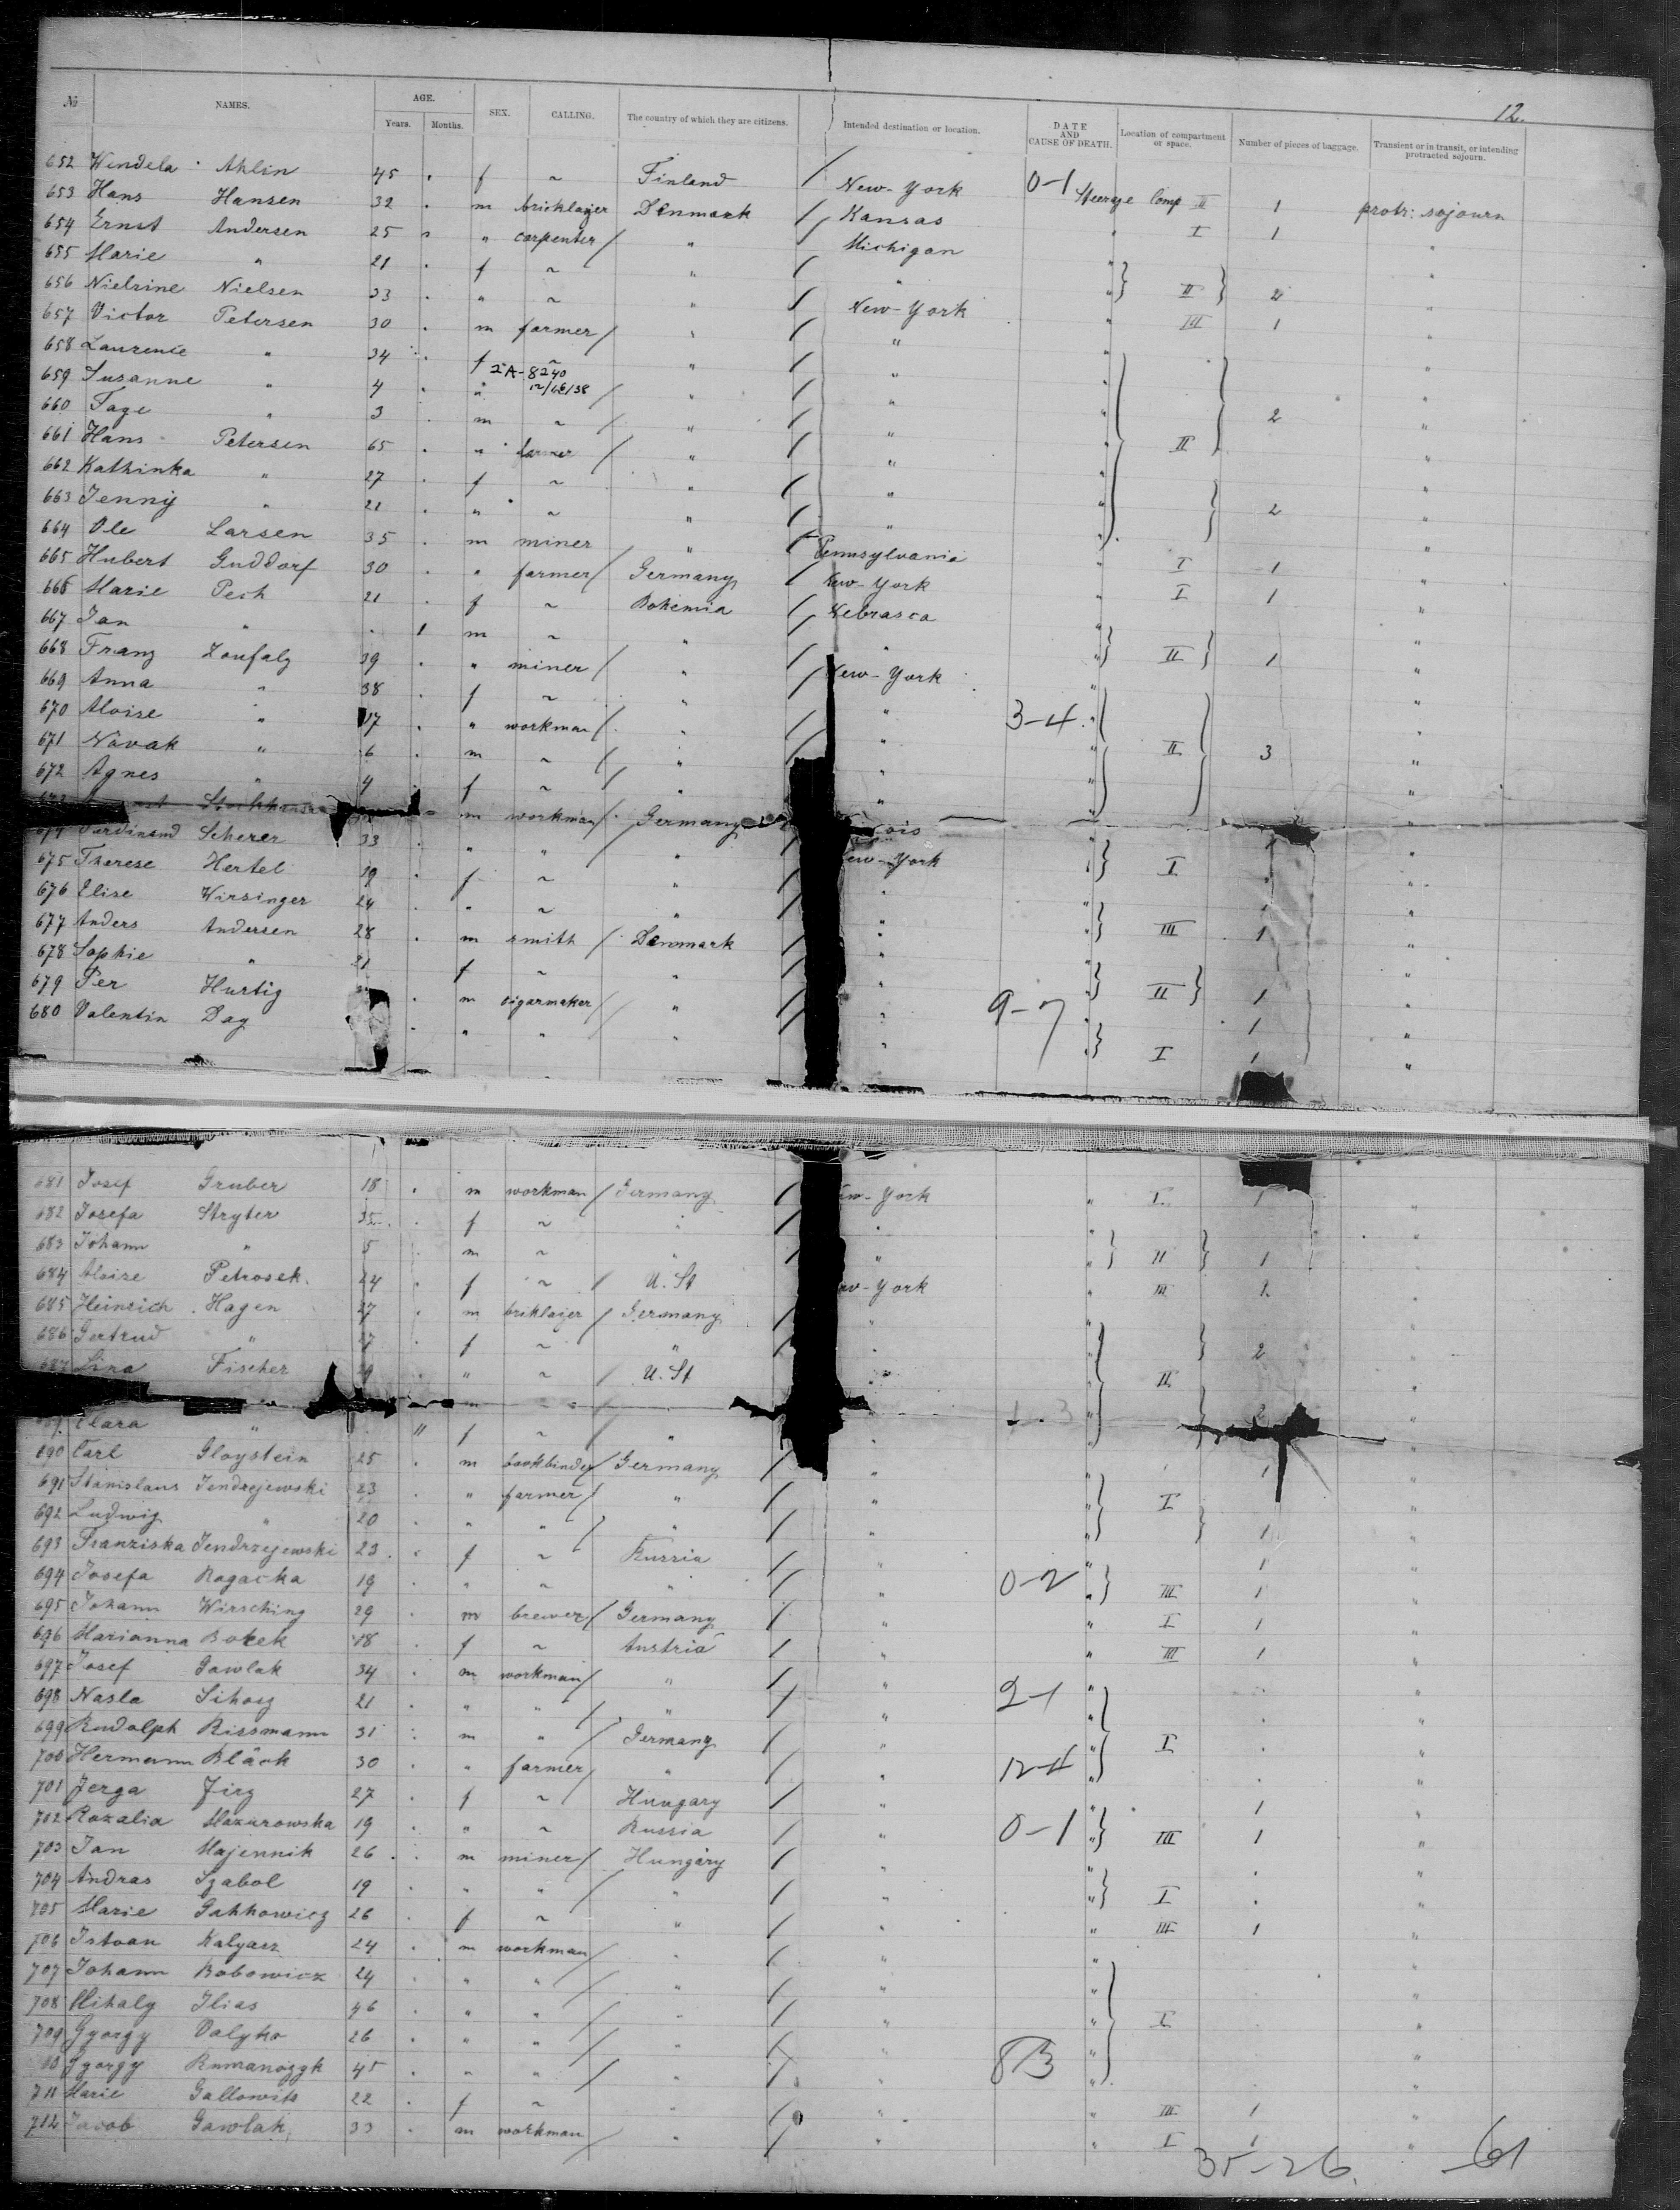 12.
№ NAMES. AGE. Years. Months. SEX. CALLING. The country of which they are citizens. Intended destination or location. DATE AND CAUSE OF DEATH. Location of compartment or space. Number of pieces of baggage. Transient or in transit, or intending protracted sojourn.
652 Wendela Ahlin 45 . f ~ Finland / New-York 0-1 Steerage Comp II 1 protr: sojourn
653 Hans Hansen 32 . m bricklayer Denmark / Kansas " I 1 "
654 Ernst Andersen 25 " " carpenter / " / Michigan " "
655 Marie " 21 . f ~ " / " " } II } 2 "
656 Nielsine Nielsen 33 . " ~ " / New-York " III 1 "
657 Victor Petersen 30 . m farmer / " / " " "
658 Laurence " 34 . f ~ " / " " "
2A-8240
12/16/38
659 Susanne " 4 . " / " / " " 2 "
660 Tage " 3 . m ~ / " / " " II "
661 Hans Petersen 65 . " farmer / " / " " "
662 Kathinka " 27 . f ~ " / " " 2 "
663 Jenny " 21 . " ~ " / " " "
664 Ole Larsen 35 . m miner " / Pennsylvania " I 1 "
665 Hubert Guddorf 30 . " farmer / Germany / New-York " I 1 "
666 Marie Pech 21 . f ~ Bohemia / Nebrasca " "
667 Jan " . 1 m ~ " / " " } II } 1 "
668 Franz Zoufalz 39 . " miner / " / New-York " "
669 Anna " 38 . f ~ " / " 3-4 " "
670 Aloise " 17 . " workman / " / " " II 3 "
671 Novak " 6 . m ~ / " / " " "
672 Agnes " 4 . f ~ / " " " "
m workman / Germany ois "
674 Ferdinand Scherer 33 . " " / " / New-York " } I "
675 Therese Hertel 19 . f ~ " / " " "
676 Elise Wirsinger 24 . " ~ " / " " } III 1 "
677 Anders Andersen 28 . m smith / Denmark / " " "
678 Sophie " 21 f ~ " / " " } II } 1 "
679 Per Hurtig . m cigarmaker / " / " 9-7 " 1 "
680 Valentin Dag . " " / " / " " } I 1 "
681 Josef Gruber 18 . m workman / Germany / ew-York " I 1 "
682 Josefa Stryter 35 . f ~ " / " " "
683 Johann " 5 . m ~ " / " " } II } 1 "
684 Aloise Petrosek 24 . f ~ / U. St ew-York " III 2 "
685 Heinrich Hagen 27 . m bricklaijer / Germany / " " "
686 Gertrud " 27 . f ~ " / " " } 2 "
687 Lina Fischer . " ~ / U. St " " II "
689 Clara " 11 f ~ / " " " "
690 Carl Gloystein 25 . m bookbinder / Germany / " " 1 "
691 Stanislaus Jendrzejewski 23 . " farmer / " / " " I "
692 Ludwig " 20 . " " / " / " " 1 "
693 Franziska Jendrzejewski 23 . f ~ Russia / " " 1 "
694 Josefa Rogacka 19 . " ~ " / " 0-2 " } III 1 "
695 Johann Wirsching 29 . m brewer / Germany / " " I 1 "
696 Marianna Botek 18 . f ~ Austria / " " III 1 "
697 Josef Gawlak 34 . m workman / " / " 2-1 " "
698 Nasla Sihosz 21 . " " / " / " " "
699 Rudolph Rissmann 31 . m " / Germany / " " I "
700 Hermann Bläck 30 . " farmer / " / " 12-4 " "
701 Jerga Jirg 27 . f ~ Hungary / " " 1 "
702 Rozalia Mazurowska 19 . " ~ Russia / " 0-1 " } III 1 "
703 Jan Majennik 26 . m miner / Hungary / " " "
704 Andras Szabol 19 . " " / " / " " } I "
705 Marie Gahkowicz 26 . f ~ " / " " III 1 "
706 Istvan Kalyarz 24 . m workman / " / " " "
707 Johann Bobowicz 24 . " " / " / " " "
708 Mihaly Ilias 46 . " " / " / " " I "
709 Gyorgy Valyko 26 . " " / " / " " "
10 Gyorgy Rumanozgk 45 . " " / " / " 8B " "
711 Marie Gallowits 22 . f ~ " / " " III 1 "
712 Jacob Gawlak 33 . m workman / " / " " I 1 "
35-26. 61